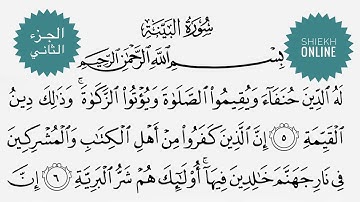 الجزء
الثاني
سُورَةُ البَيِّنَة
SHIEKH
ONLINE
بِسْمِ ٱللَّهِ ٱلرَّحْمَٰنِ ٱلرَّحِيمِ
لَهُ ٱلدِّينَ حُنَفَآءَ وَيُقِيمُوا۟ ٱلصَّلَوٰةَ وَيُؤْتُوا۟ ٱلزَّكَوٰةَ ۚ وَذَٰلِكَ دِينُ
ٱلْقَيِّمَةِ ٥ إِنَّ ٱلَّذِينَ كَفَرُوا۟ مِنْ أَهْلِ ٱلْكِتَٰبِ وَٱلْمُشْرِكِينَ
فِى نَارِ جَهَنَّمَ خَٰلِدِينَ فِيهَآ ۚ أُو۟لَٰٓئِكَ هُمْ شَرُّ ٱلْبَرِيَّةِ ٦ إِنَّ